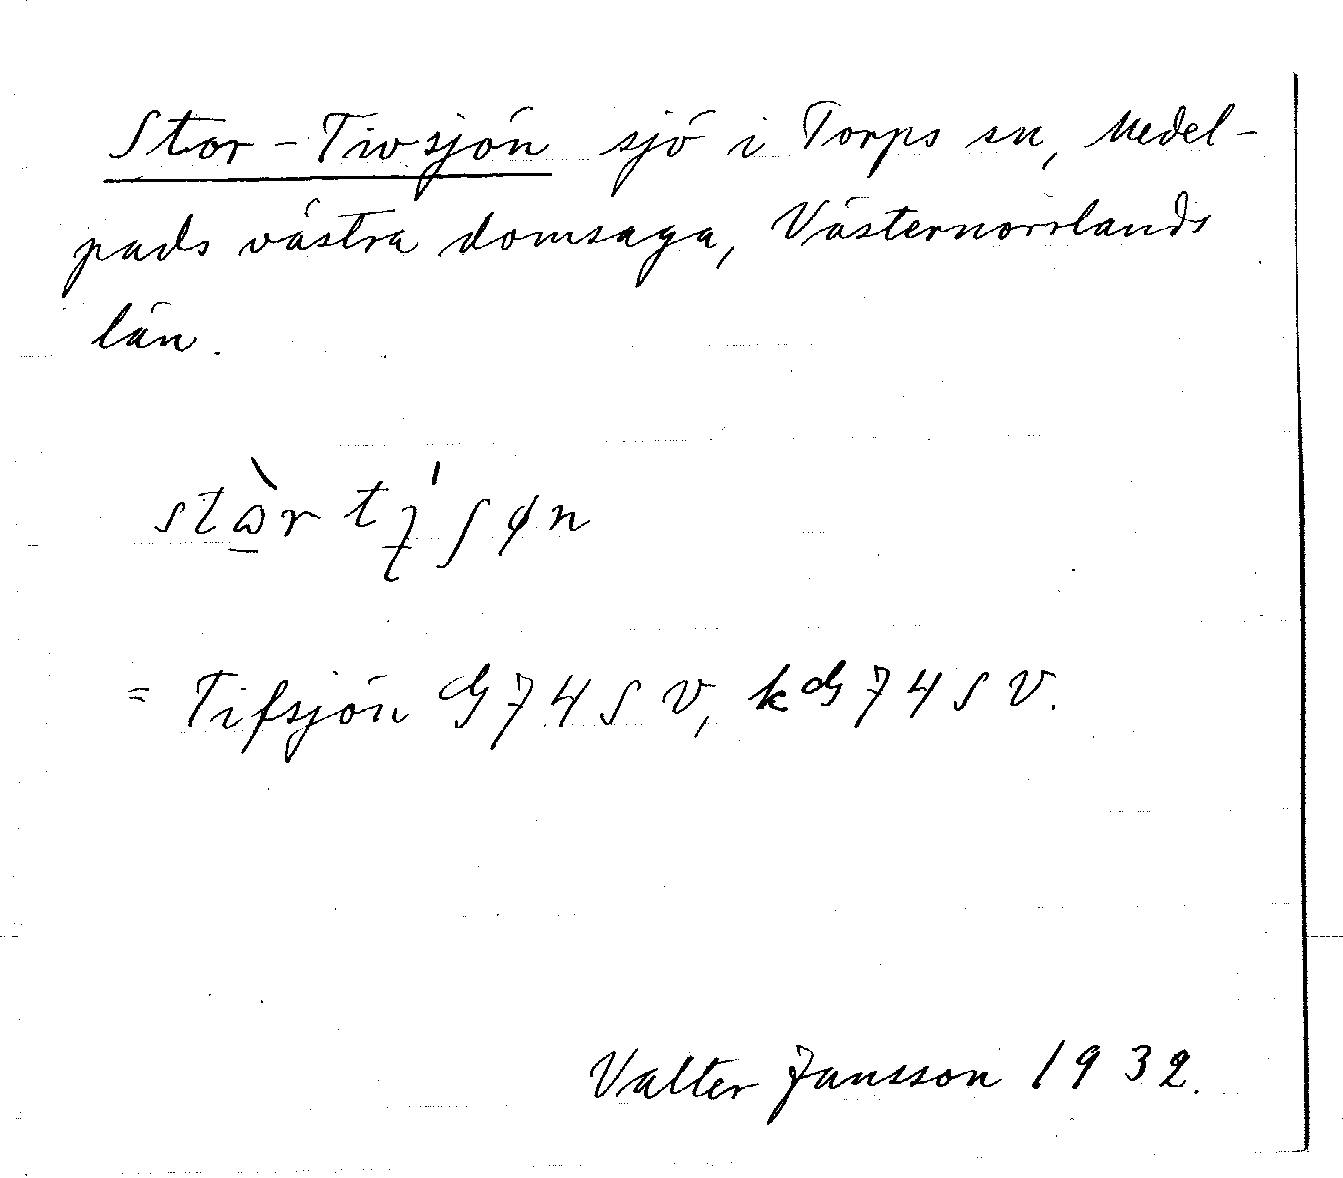 Stor-Tivsjön sjö i Torps sn, Medel-
pads västra domsaga, Västernorrlands
län.
= Tifsjön G 74 S V, kG 74 S V.
Valter Jansson 1932.